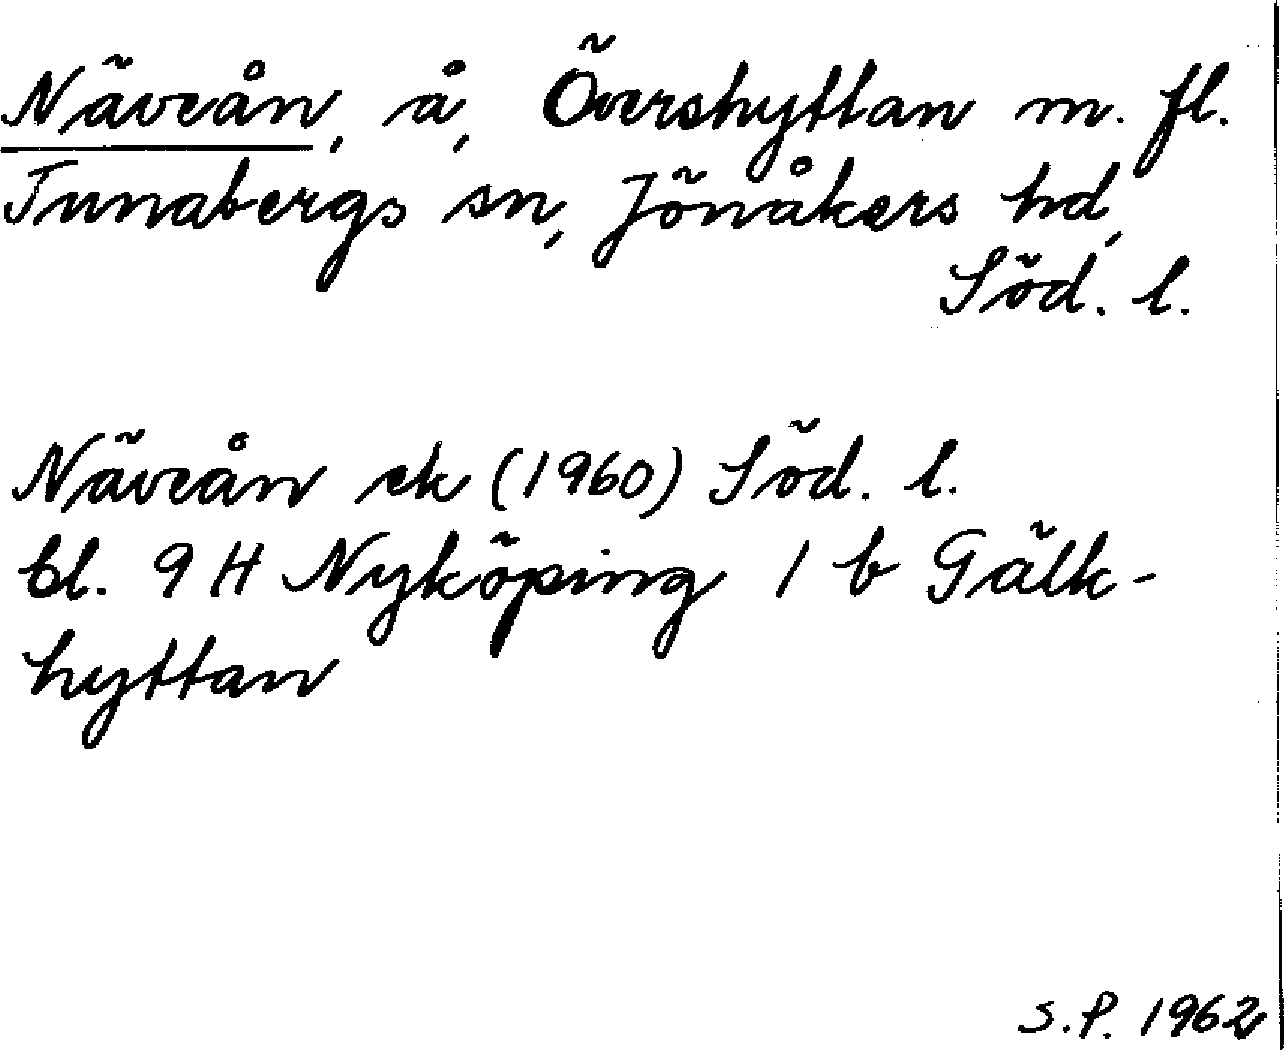 Näveån, å, Övershyttan m. fl.
Tunabergs sn, Jönåkers hd,
Söd. l.
Näveån ek (1960) Söd. l.
bl. 9 H Nyköping 1 b Gälk-
hyttan
S.P. 1962